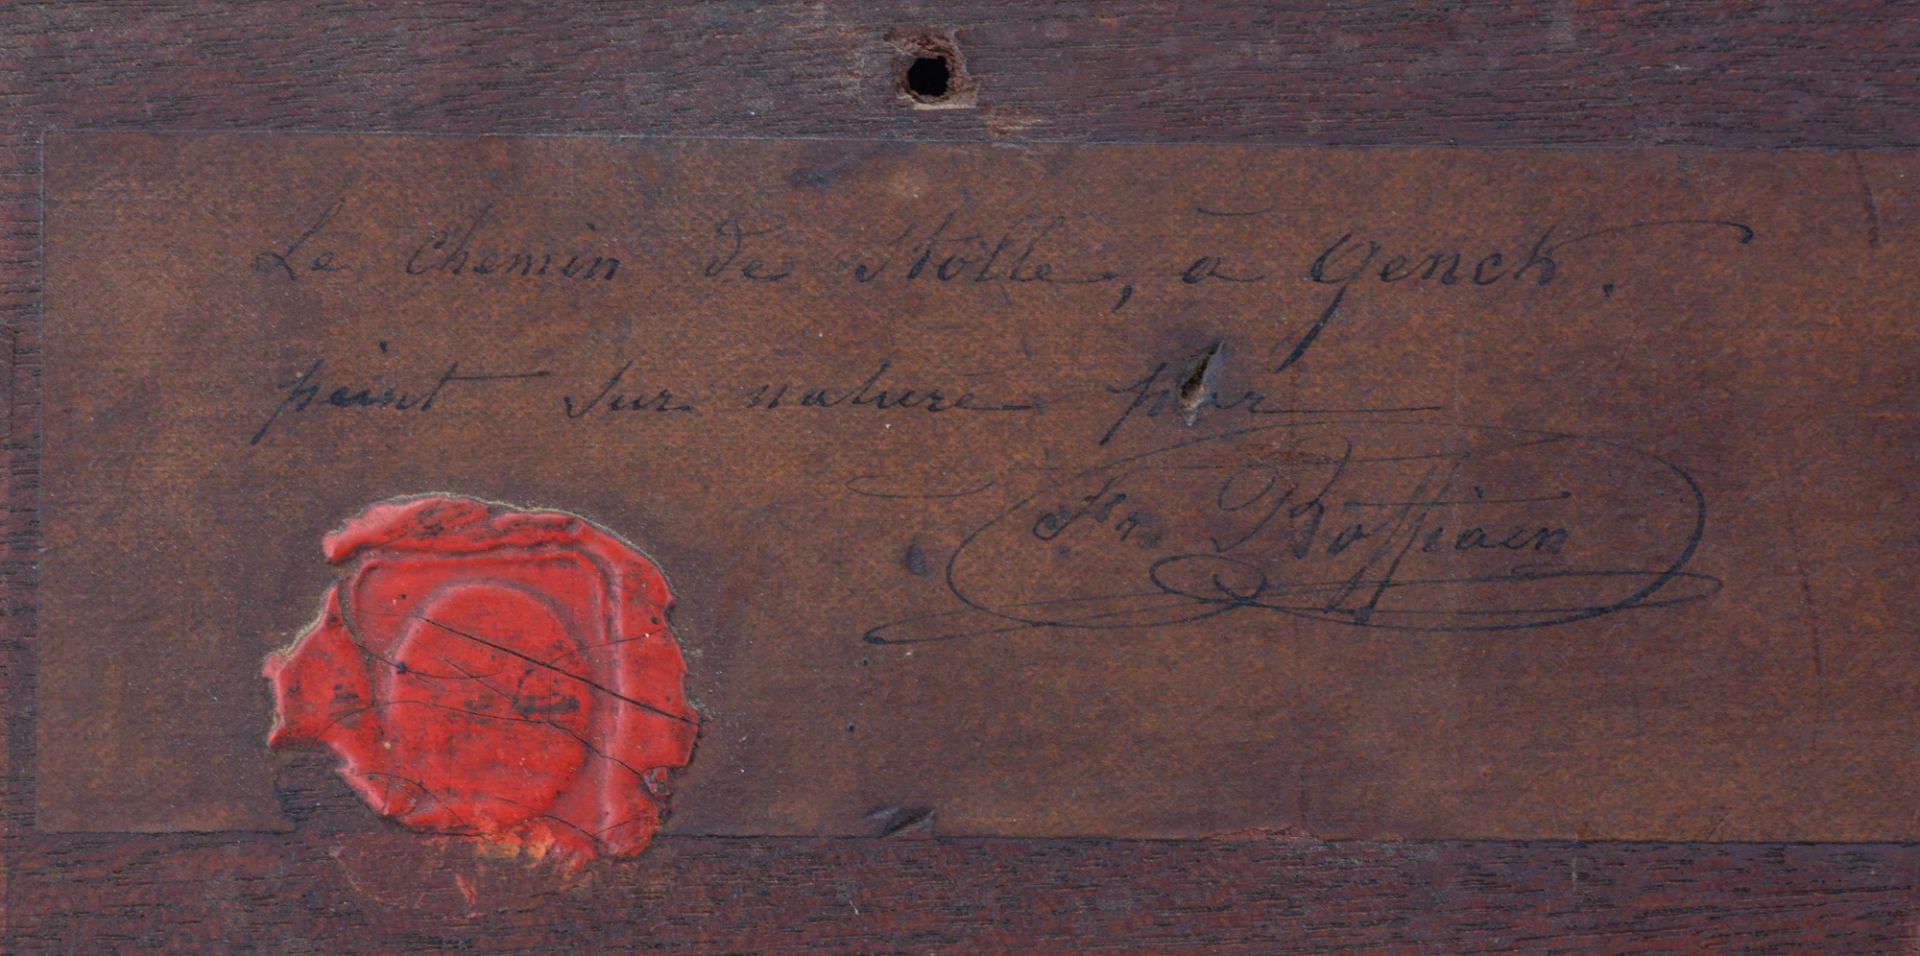 Le Chemin de Stolle, à Genck.
peint sur nature par
Fr. Bossiaen